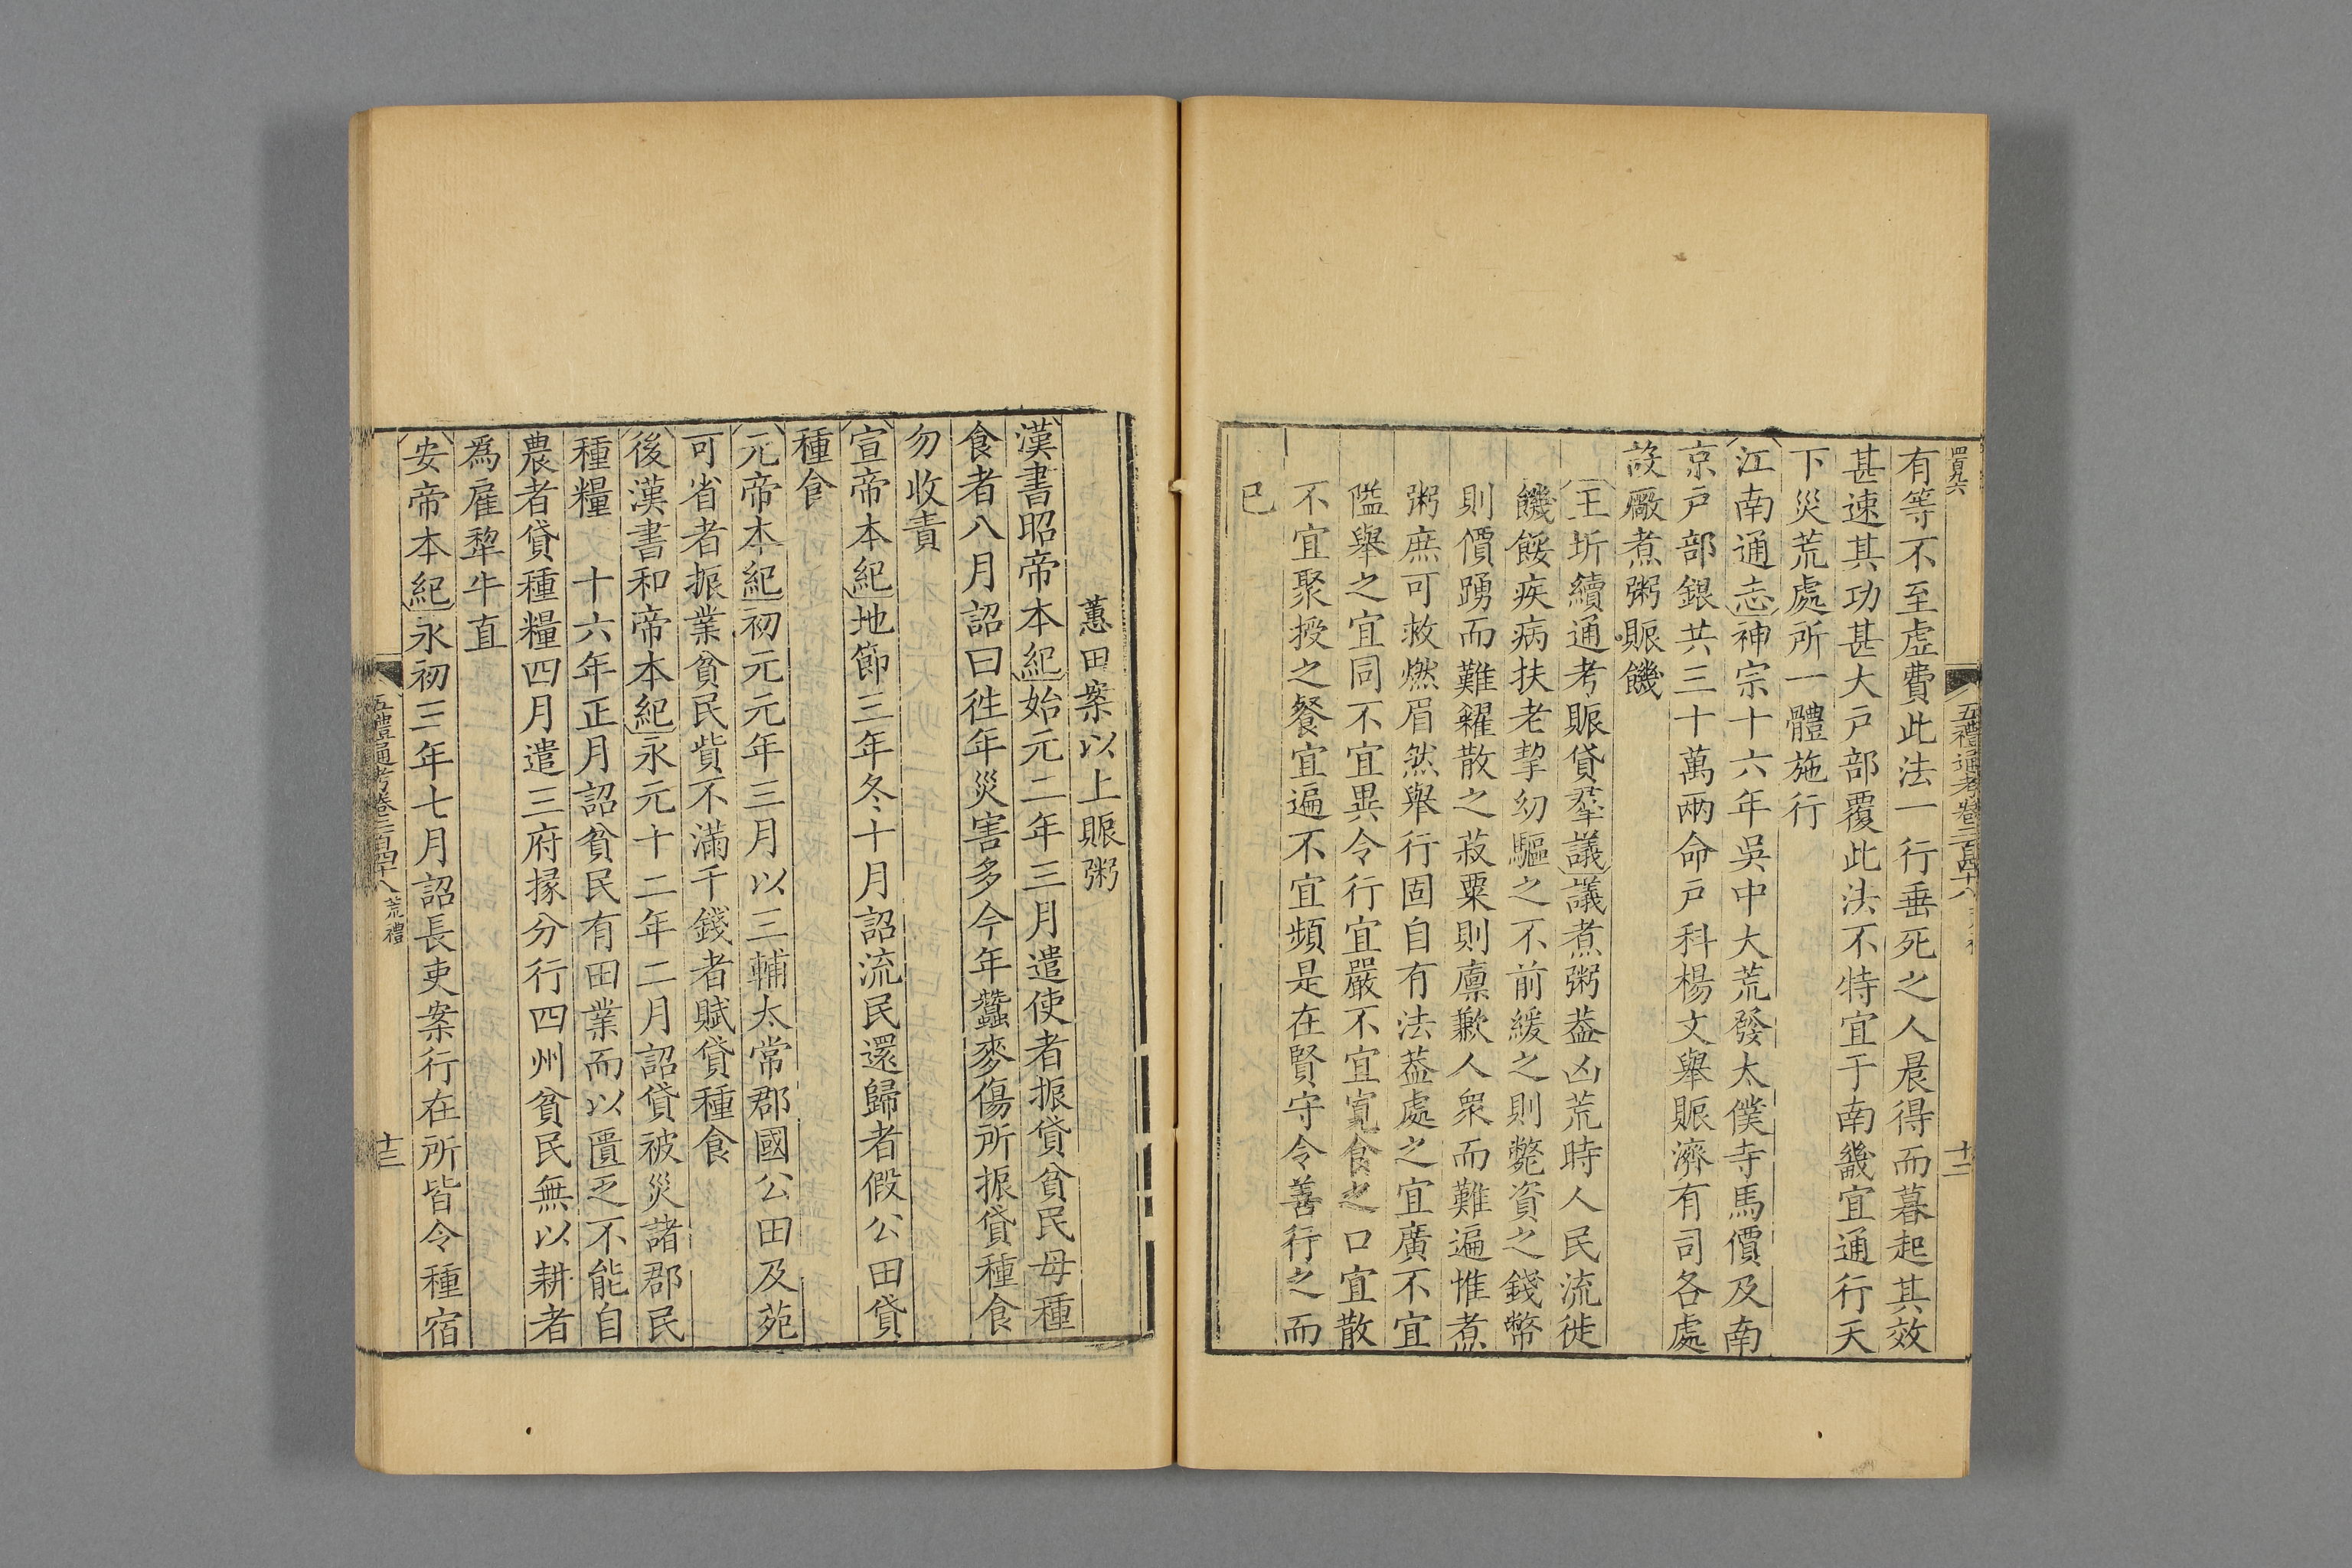 有等不至虛費此法一行垂死之人晨得而暮起其效
甚速其功甚大戸部覆此法不特宜于南畿宜通行天
下災荒處所一體施行
江南通志神宗十六年吳中大荒發太僕寺馬價及南
京戸部銀共三十萬兩命戸科楊文舉賑濟有司各處
設厰煮粥賑饑
王圻續通考賑貸羣議議煮粥葢凶荒時人民流徙
饑餒疾病扶老挈幼驅之不前緩之則斃資之錢幣
則價踴而難糴散之菽粟則廩歉人衆而難遍惟煮
粥庶可救燃眉然舉行固自有法葢處之宜廣不宜
隘舉之宜同不宜異令行宜嚴不宜寬食之口宜散
不宜聚授之餐宜遍不宜頻是在賢守令善行之而
已
五禮通考卷二百四十八
十二
蕙田案以上賑粥
漢書昭帝本紀始元二年三月遣使者振貸貧民毋種
食者八月詔曰徃年災害多今年蠶麥傷所振貸種食
勿收責
宣帝本紀地節三年冬十月詔流民還歸者假公田貸
種食
元帝本紀初元元年三月以三輔太常郡國公田及苑
可省者振業貧民貲不滿千錢者賦貸種食
後漢書和帝本紀永元十二年二月詔貸被災諸郡民
種糧 十六年正月詔貧民有田業而以匱乏不能自
農者貸種糧四月遣三府掾分行四州貧民無以耕者
為雇犂牛直
安帝本紀永初三年七月詔長吏案行在所皆令種宿
五禮通考卷二百四十八 荒禮
十三